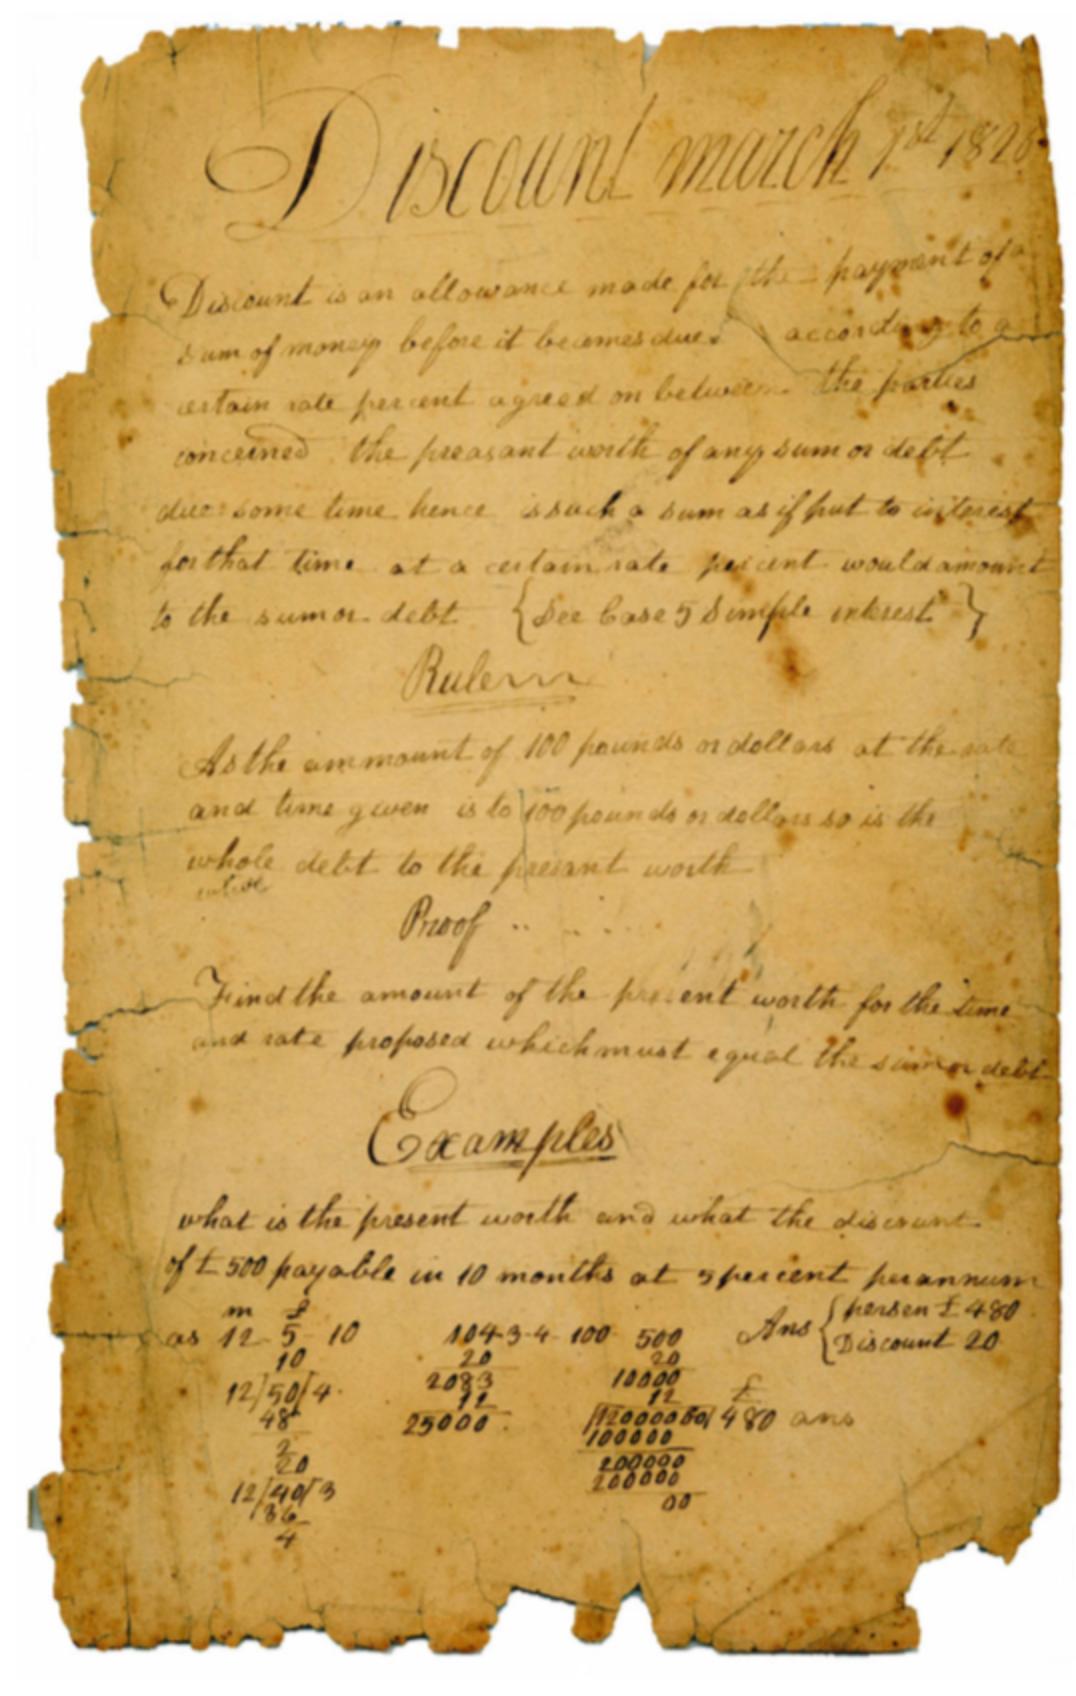 Discount march 1st 182
Discount is an allowance made for the payment of a
sum of money before it becomes due. according to a
certain rate percent agreed on between the parties
concerned the preasant worth of any sum or debt
due some time hence is such a sum as if put to interest
for that time at a certain rate percent would amount
to the sum or debt {See Case 5 Simple interest}
Rule
As the ammount of 100 pounds or dollars at the rate
and time given is to 100 pounds or dollars so is the
whole debt to the presant worth
Proof
Find the amount of the present worth for the time
and rate proposed which must equal the sum or debt
Examples
what is the present worth and what the discount
of £ 500 payable in 10 months at 5 percent perannum
m £
as 12 5 10 104-3-4 100 500 Ans { persen £ 480
10 20 20 Discount 20
12/50/4 2083 10000
48 12 12 £
2 25000 120000 480 ans
20 100000
12/40/3 200000
36 200000
4 00